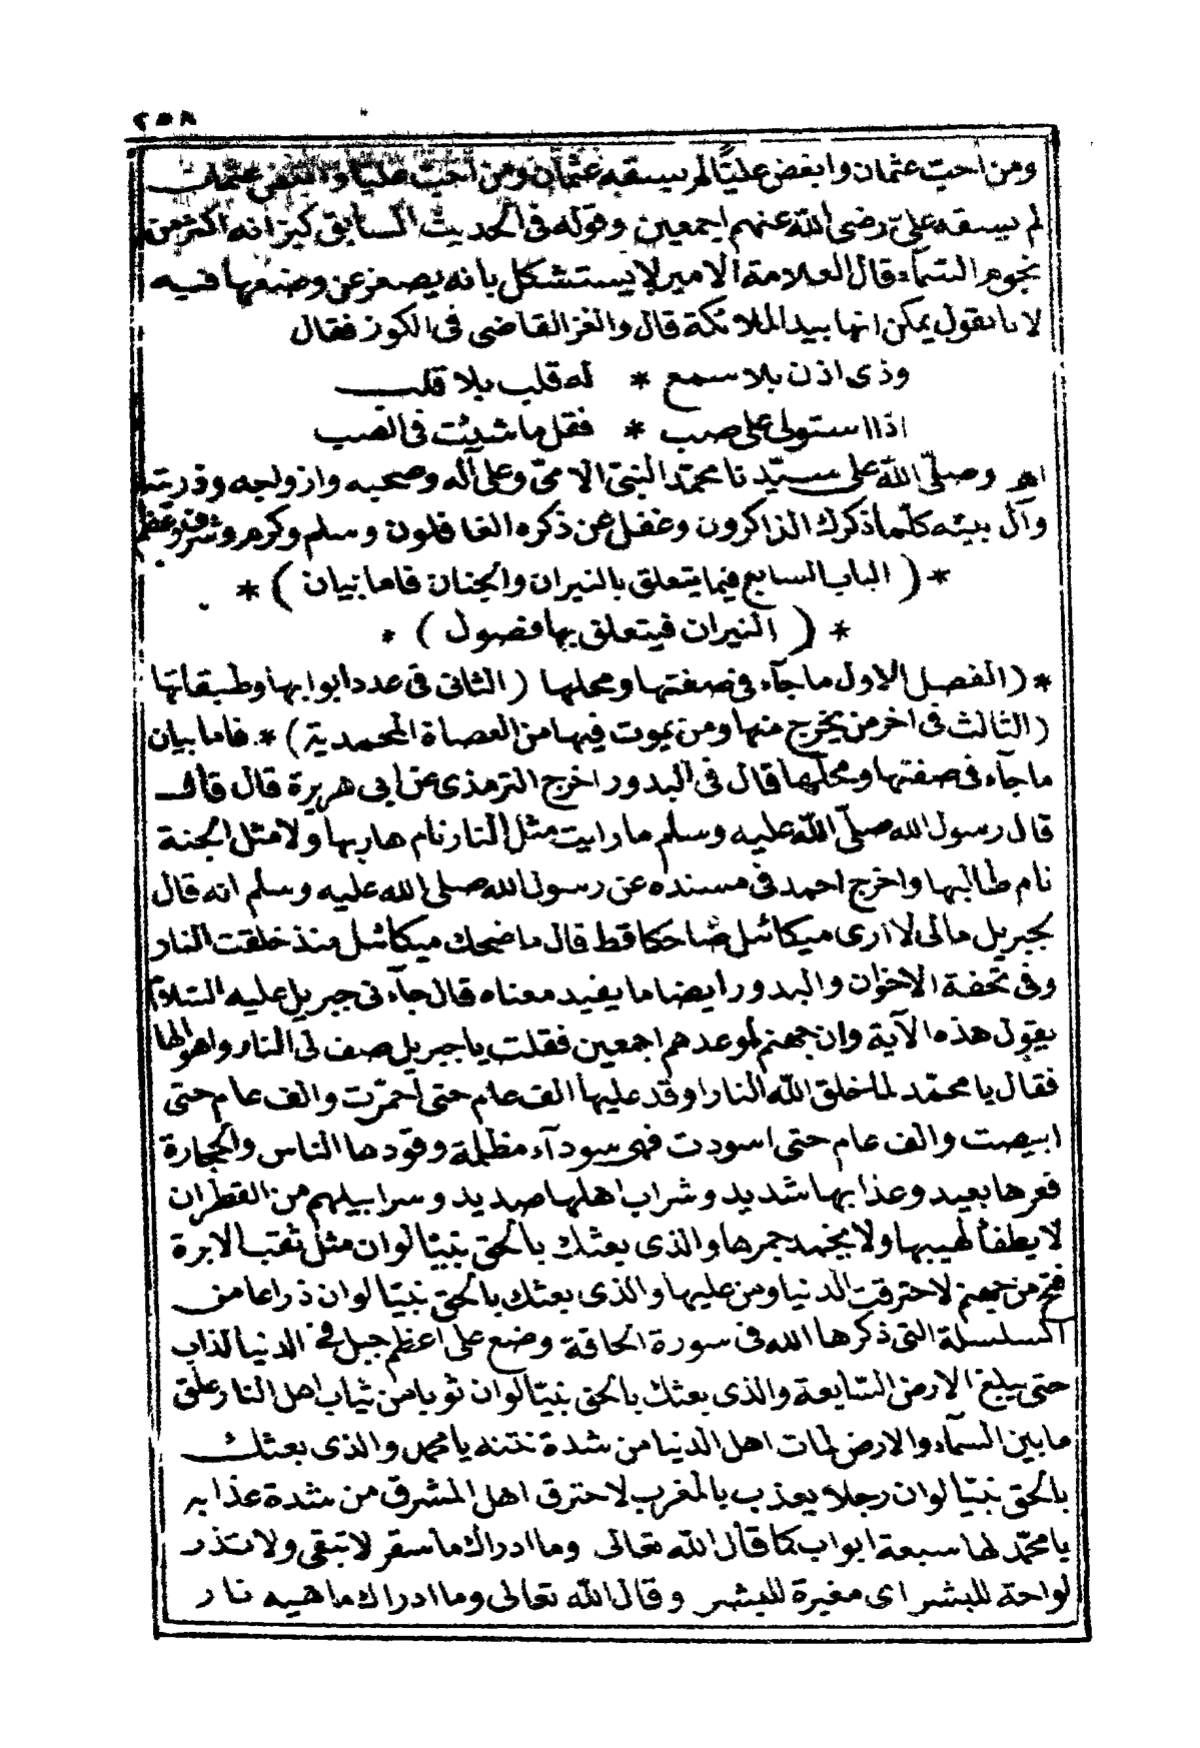 ٢٥٨
ومن احبّ عثمان وابغض عليّا لم يسقه عثمان ومن احبّ عليّا وابغض عثمان
لم يسقه علىّ رضى الله عنهم اجمعين وقوله فى الحديث السابق كيزانه اكثر من
نجوم السماء قال العلامة الامير لا يستشكل بانه يصغر عن وضعها فيه
لانا نقول يمكن انها بيد الملائكة قال والغز القاضى فى الكوز فقال
وذى اذن بلا سمع * له قلب بلا قلب
اذا استولى على صب * فقل ما شئت فى الصب
اهـ وصلّى الله على سيّدنا محمّد النبىّ الامىّ وعلى آله وصحبه وازواجه وذريته
وآل بيته كلّما ذكرك الذاكرون وغفل عن ذكره الغافلون وسلم وكرم وشرف وعظم
* ( الباب السابع فيما يتعلق بالنيران والجنان فاما بيان ) *
* ( النيران فيتعلق بها فصول ) *
* (الفصل الاول ما جآء فى صفتها ومحلها (الثانى فى عدد ابوابها وطبقاتها
(الثالث فى اخر من يخرج منها ومن يموت فيها من العصاة المحمدية) * فاما بيان
ما جآء فى صفتها ومحلها قال فى البدور اخرج الترمذى عن ابى هريرة قال قال
قال رسول الله صلّى الله عليه وسلم ما رايت مثل النار نام هاربها ولا مثل الجنة
نام طالبها واخرج احمد فى مسنده عن رسول الله صلى الله عليه وسلم انه قال
لجبريل مالى لا ارى ميكائل ضاحكا قط قال ما ضحك ميكائل منذ خلقت النار
وفى تحفة الاخوان والبدور ايضا ما يفيد معناه قال جآءنى جبريل عليه السّلام
يقول هذه الآية وان جهنم لموعدهم اجمعين فقلت يا جبريل صف لى النار واهوالها
فقال يا محمّد لما خلق الله النار اوقد عليها الف عام حتى احمرّت والف عام حتى
ابيضت والف عام حتى اسودت فهى سودآء مظلمة وقودها الناس والحجارة
قعرها بعيد وعذابها شديد وشراب اهلها صديد وسرابيلهم من القطران
لا يطفأ لهيبها ولا يخمد جمرها والذى بعثك بالحق نبيّا لوان مثل ثقب الابرة
فتح من جهنم لاحترقت الدنيا ومن عليها والذى بعثك بالحق نبيّا لوان ذراعا من
السلسلة التى ذكرها الله فى سورة الحاقة وضع على اعظم جبل فى الدنيا لذاب
حتى يبلغ الارض السّابعة والذى بعثك بالحق نبيّا لوان ثوبا من ثياب اهل النار علق
ما بين السّمآء والارض لمات اهل الدنيا من شدة نتنه يا محمد والذى بعثك
بالحق نبيّا لوان رجلا يعذب بالمغرب لاحترق اهل المشرق من شدة عذابه
يا محمّد لها سبعة ابواب كما قال الله تعالى وما ادراك ما سقر لا تبقى ولا تذر
لواحة للبشر اى مغيرة للبشر وقال الله تعالى وما ادراك ما هيه نار